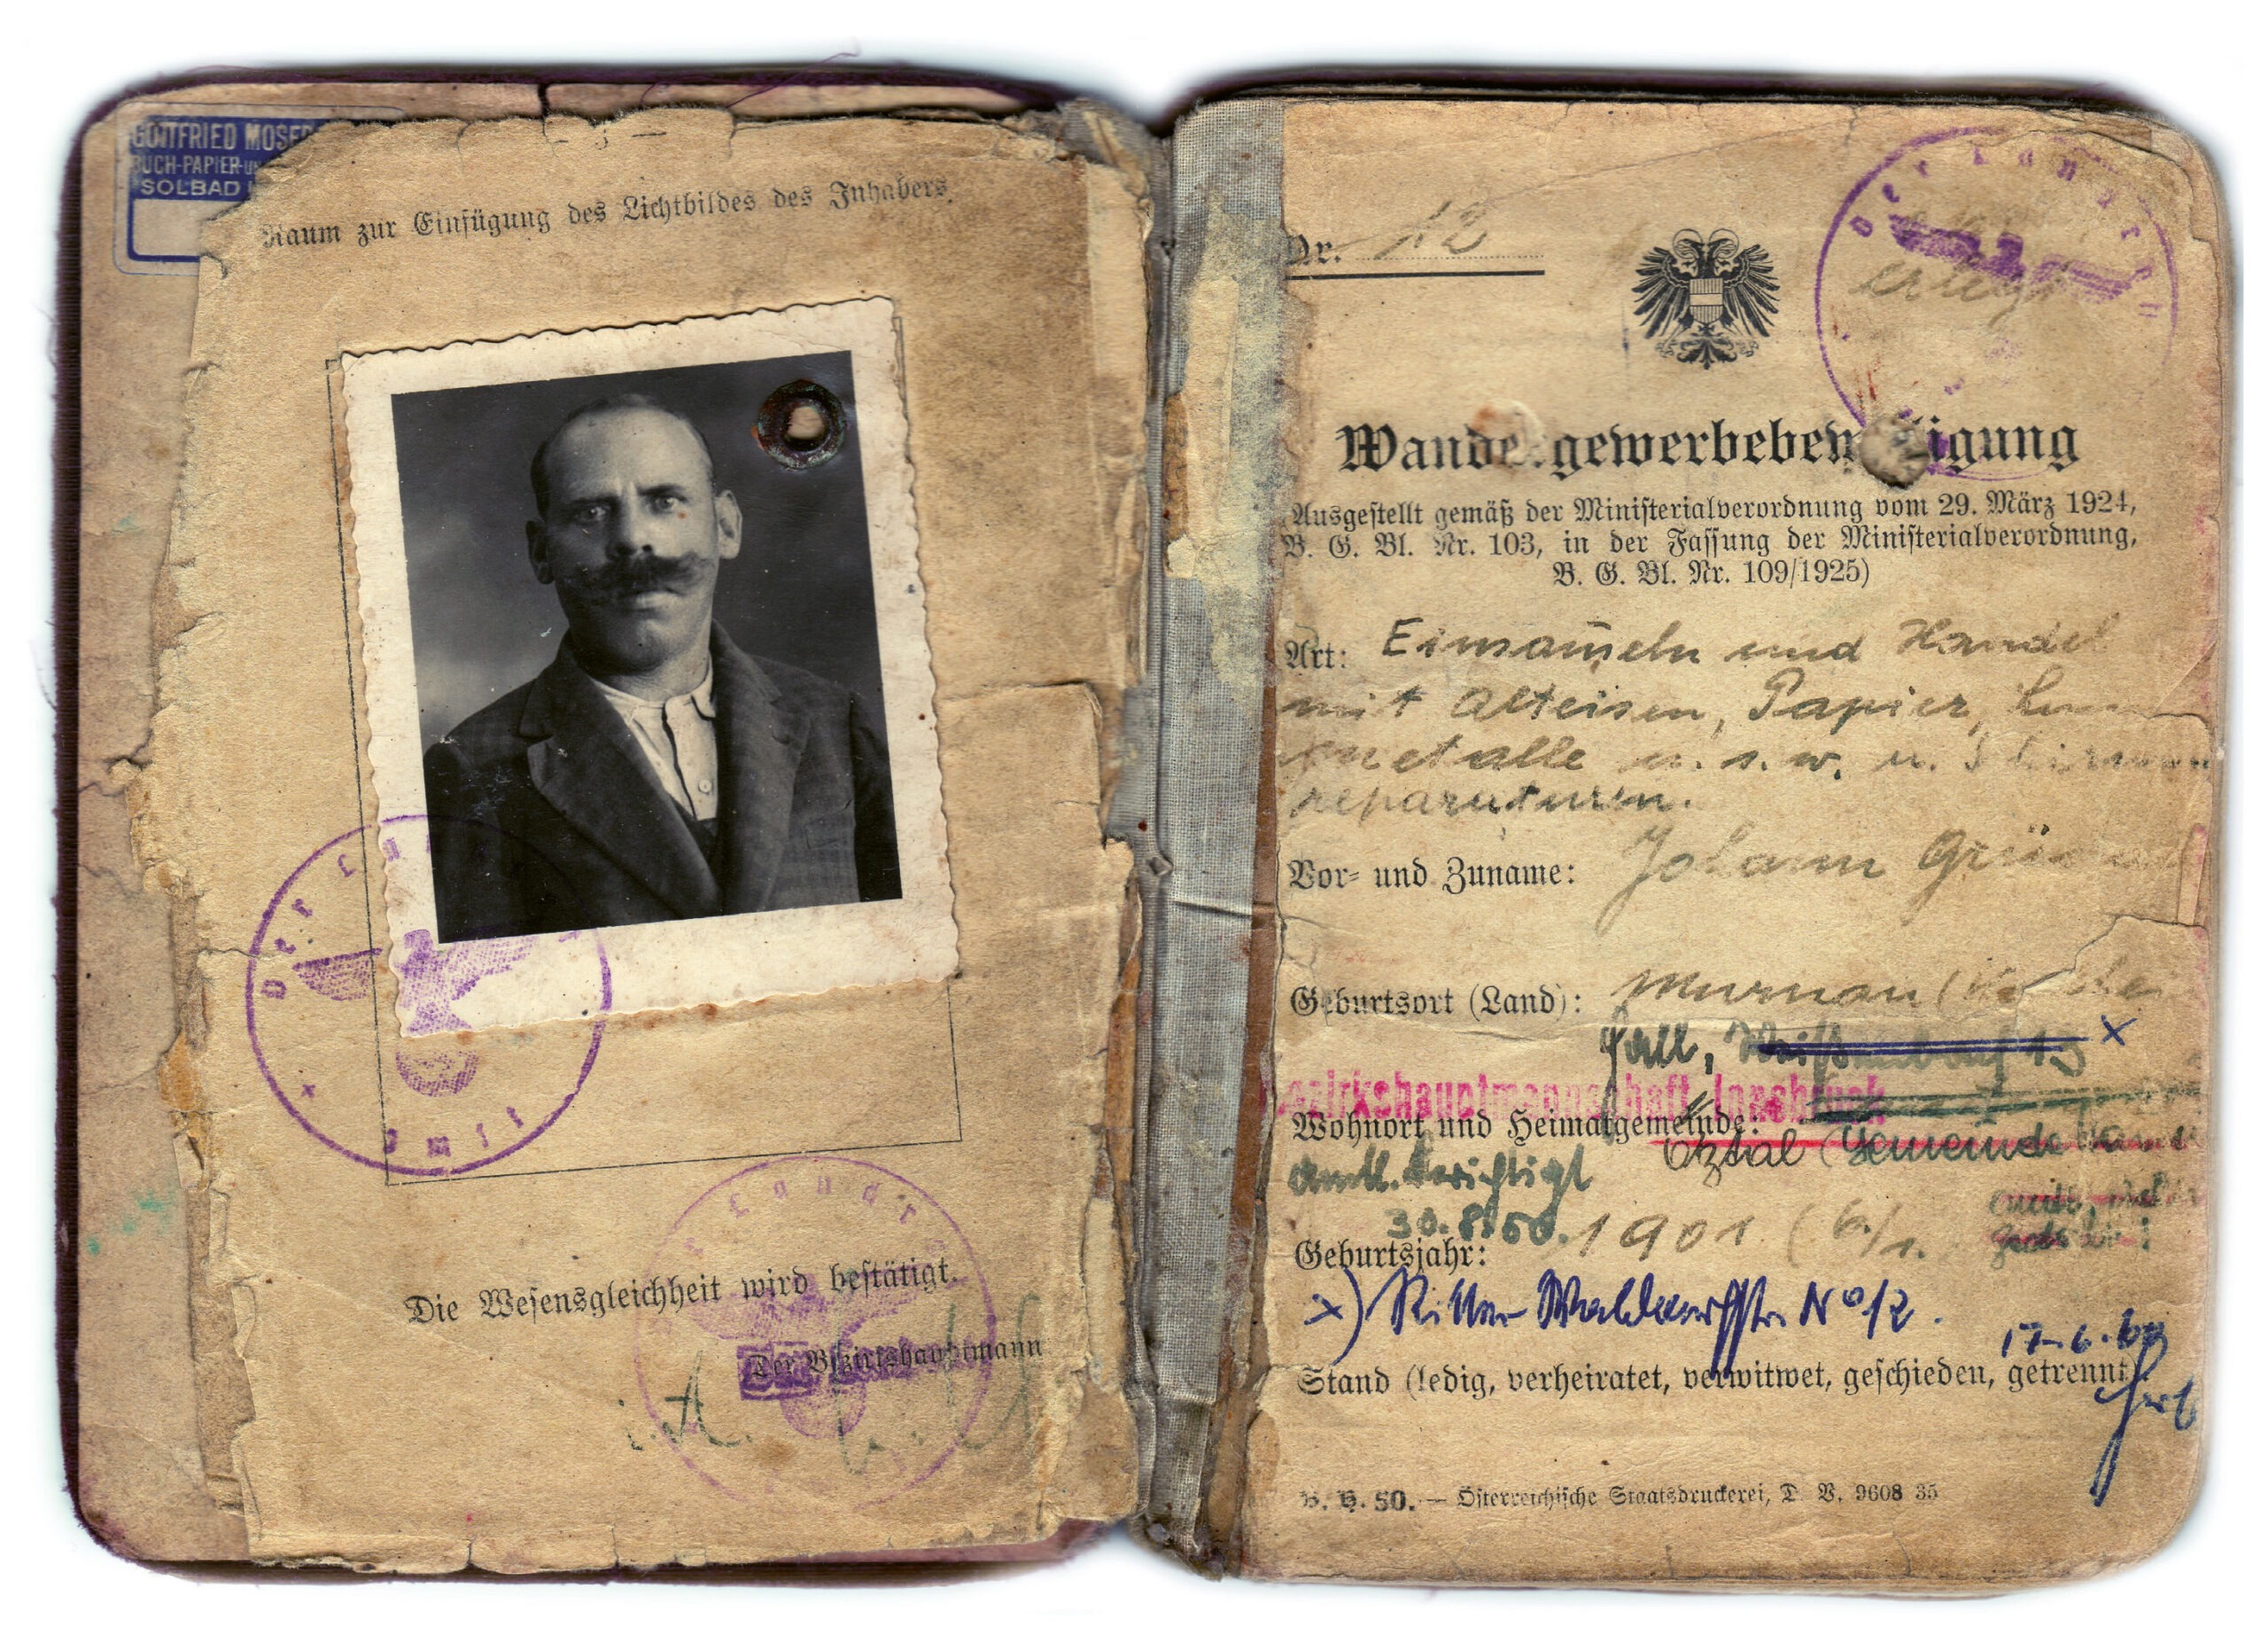 GOTTFRIED MOSER
BUCH-PAPIER-
SOLBAD
Raum zur Einfügung des Lichtbildes des Inhabers.
Der Landrat
Die Wesensgleichheit wird bestätigt.
Der Bezirkshauptmann
i. A.
Nr. 12
Der Landrat
erlegt
Wandergewerbebewilligung
Ausgestellt gemäß der Ministerialverordnung vom 29. März 1924,
B. G. Bl. Nr. 103, in der Fassung der Ministerialverordnung,
B. G. Bl. Nr. 109/1925)
Art: Einsammeln und Handel
mit Alteisen, Papier,
metalle u. s. w. u. Schirm
reparaturen.
Vor- und Zuname: Johann
Geburtsort (Land): Murnau
Hall,
Bezirkshauptmannschaft Innsbruck
Wohnort und Heimatgemeinde:
Ötztal (Gemeinde
amtl. berichtigt
30.8.50.
Geburtsjahr: 1901 (6/1.
x) Ritter Waldaufstr. No 12.
17.6.
Stand (ledig, verheiratet, verwitwet, geschieden, getrennt):
B. H. 50. — Österreichische Staatsdruckerei, D. V. 9608 35